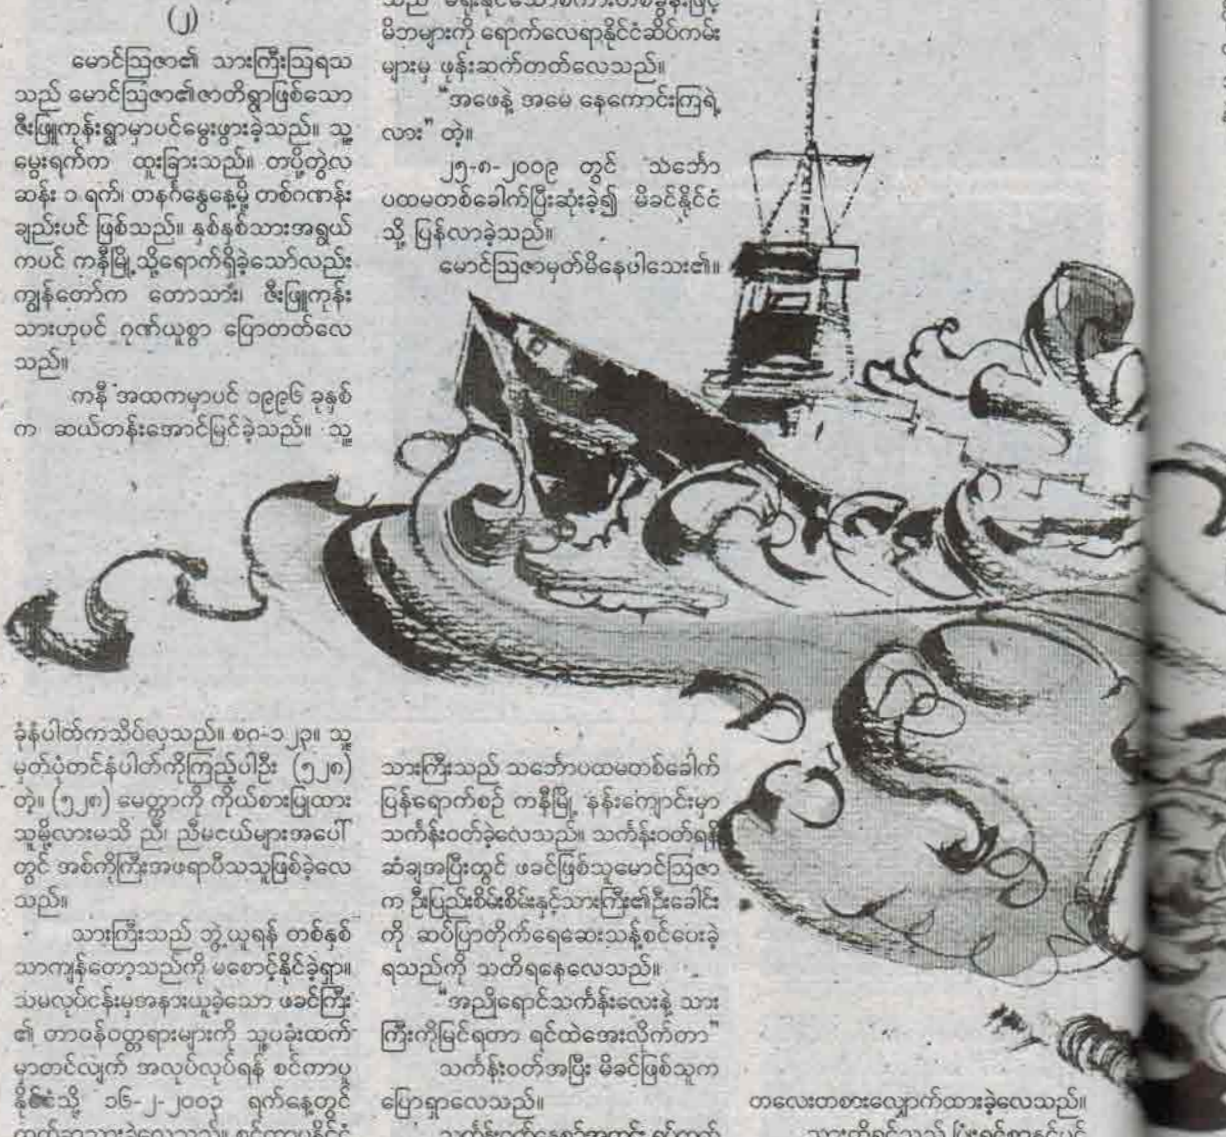 (၂)
မောင်ဩဇာ၏ သားကြီးဩရသ
သည် မောင်ဩဇာ၏ဇာတိရွာဖြစ်သော
ဇီးဖြူကုန်းရွာမှာပင်မွေးဖွားခဲ့သည်။ သူ့
မွေးရက်က ထူးခြားသည်။ တပို့တွဲလ
ဆန်း ၁ ရက်၊ တနင်္ဂနွေနေ့မို့ တစ်ဂဏန်း
ချည်းပင် ဖြစ်သည်။ နှစ်နှစ်သားအရွယ်
ကပင် ကနီမြို့သို့ရောက်ရှိခဲ့သော်လည်း
ကျွန်တော်က တောသား၊ ဇီးဖြူကုန်း
သားဟုပင် ဂုဏ်ယူစွာ ပြောတတ်လေ
သည်။
ကနီ အထကမှာပင် ၁၉၉၆ ခုနှစ်
က ဆယ်တန်းအောင်မြင်ခဲ့သည်။ သူ့
ခုံနံပါတ်ကသိပ်လှသည်။ စဂ-၁၂၃။ သူ့
မှတ်ပုံတင်နံပါတ်ကိုကြည့်ပါဦး (၅၂၈)
တဲ့။ (၅၂၈) မေတ္တာကို ကိုယ်စားပြုထား
သူမို့လားမသိ ညီ၊ ညီမငယ်များအပေါ်
တွင် အစ်ကိုကြီးအဖရာပီသသူဖြစ်ခဲ့လေ
သည်။
သားကြီးသည် ဘွဲ့ယူရန် တစ်နှစ်
သာကျန်တော့သည်ကို မစောင့်နိုင်ခဲ့ရှာ။
သမလုပ်ငန်းမှအနားယူခဲ့သော ဖခင်ကြီး
၏ တာဝန်ဝတ္တရားများကို သူ့ပခုံးထက်
မှာတင်လျက် အလုပ်လုပ်ရန် စင်ကာပူ
နိုင်ငံသို့ ၁၆-၂-၂၀၀၃ ရက်နေ့တွင်
မိဘများကို ရောက်လေရာနိုင်ငံဆိပ်ကမ်း
များမှ ဖုန်းဆက်တတ်လေသည်။
"အဖေနဲ့ အမေ နေကောင်းကြရဲ့
လား" တဲ့။
၂၅-၈-၂၀၀၉ တွင် သင်္ဘော
ပထမတစ်ခေါက်ပြီးဆုံးခဲ့၍ မိခင်နိုင်ငံ
သို့ ပြန်လာခဲ့သည်။
မောင်ဩဇာမှတ်မိနေပါသေး၏။
သားကြီးသည် သင်္ဘောပထမတစ်ခေါက်
ပြန်ရောက်စဉ် ကနီမြို့ နန်းကျောင်းမှာ
သင်္ကန်းဝတ်ခဲ့လေသည်။ သင်္ကန်းဝတ်ရန်
ဆံချအပြီးတွင် ဖခင်ဖြစ်သူမောင်ဩဇာ
က ဦးပြည်းစိမ်းစိမ်းနှင့်သားကြီး၏ဦးခေါင်း
ကို ဆပ်ပြာတိုက်ရေဆေးသန့်စင်ပေးခဲ့
ရသည်ကို သတိရနေလေသည်။
"အညိုရောင်သင်္ကန်းလေးနဲ့ သား
ကြီးကိုမြင်ရတာ ရင်ထဲအေးလိုက်တာ"
သင်္ကန်းဝတ်အပြီး မိခင်ဖြစ်သူက
ပြောရှာလေသည်။
တလေးတစားလျှောက်ထားခဲ့လေသည်။